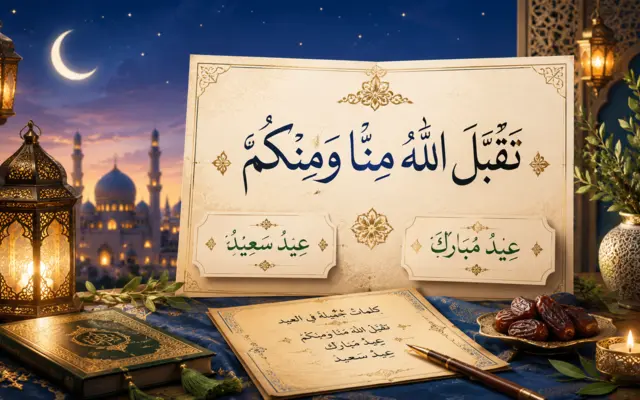 تَقَبَّلَ اللَّهُ مِنَّا وَمِنْكُمْ
عِيدٌ مُبَارَكٌ
عِيدٌ سَعِيدٌ
كلمات جميلة في العيد
تقبل الله منا ومنكم
عيد مبارك
عيد سعيد